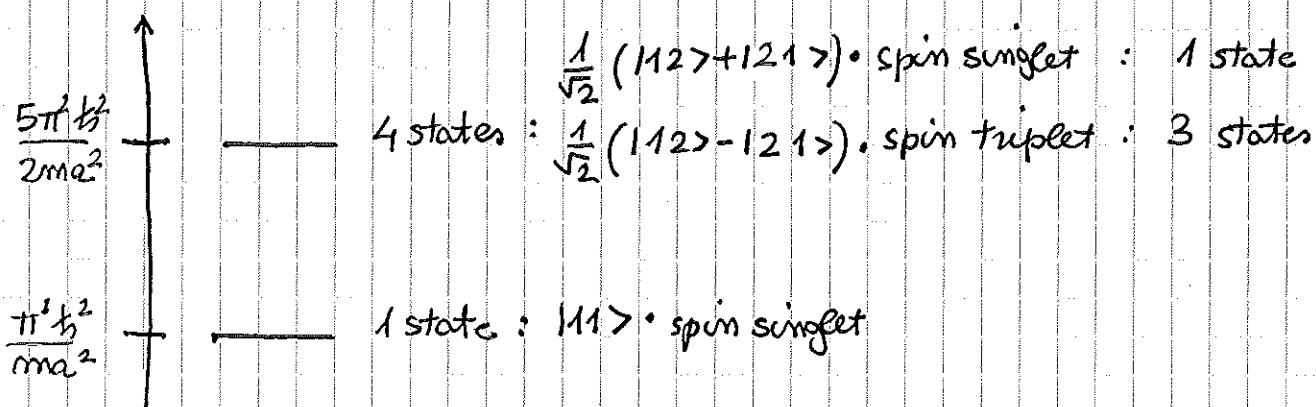 1/√2 (|12>+|21>)· spin singlet : 1 state
5π²ħ²/2ma² 4 states : 1/√2 (|12>-|21>)· spin triplet : 3 states
π²ħ²/ma² 1 state : |11>· spin singlet